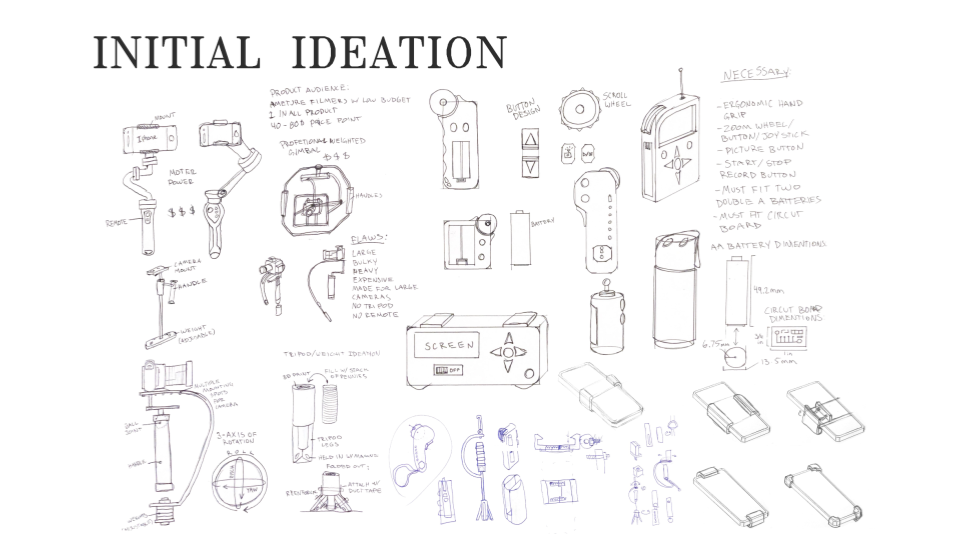 INITIAL IDEATION
PRODUCT AUDIENCE:
AMETURE FILMERS W LOW BUDGET
1 IN ALL PRODUCT
40-80$ PRICE POINT
PROFETIONAL WEIGHTED
GIMBAL
$$$
HANDLES
MOUNT
Iphone
MOTER
POWER
$$$
REMOTE
FLAWS:
LARGE
BULKY
HEAVY
EXPENSIVE
MADE FOR LARGE
CAMERAS
NO TRIPOD
NO REMOTE
CAMERA
MOUNT
HANDLE
WEIGHT
MULTIPLE
MOUNTING
SPOTS
FOR
CAMERA
BALL
JOINT
HANDLE
3-AXIS OF
ROTATION
ROLL
TRIPOD/WEIGHT IDEATION
3D PRINT
FILL W/ STACK
OF PENNIES
TRIPOD
LEGS
FOLDED OUT:
ATTACH W/
DUCT TAPE
BUTTON
DESIGN
SCROLL
WHEEL
BATTERY
SCREEN
OFF
NECESSARY
-ERGONOMIC HAND
GRIP
-ZOOM WHEEL/
BUTTON/JOYSTICK
-PICTURE BUTTON
-START/STOP
RECORD BUTTON
-MUST FIT TWO
DOUBLE A BATTERIES
-MUST FIT CIRCUT
BOARD
AA BATTERY DIMENTIONS
49.2mm
6.75mm
13.5mm
CIRCUT BOARD
DIMENTIONS